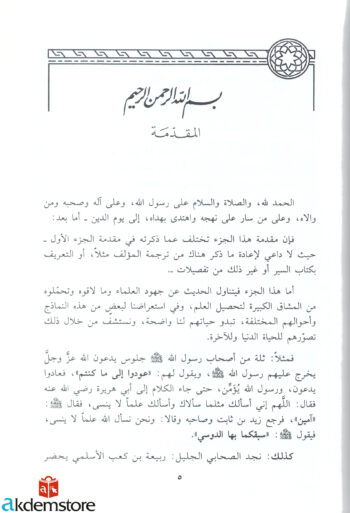 بسم الله الرحمن الرحيم
المقدمة
الحمد لله، والصلاة والسلام على رسول الله، وعلى آله وصحبه ومن
والاه، وعلى من سار على نهجه واهتدى بهداه، إلى يوم الدين ـ أما بعد:
فإن مقدمة هذا الجزء تختلف عما ذكرته في مقدمة الجزء الأول ـ
حيث لا داعي لإعادة ما ذكر هناك من ترجمة المؤلف مثلاً، أو التعريف
بكتاب السير أو غير ذلك من تفصيلات ...
أما هذا الجزء فيتناول الحديث عن جهود العلماء وما لاقوه وتحمّلوه
من المشاق الكبيرة لتحصيل العلم، وفي استعراضنا لبعض من هذه النماذج
وأحوالهم المختلفة، تبدو حياتهم لنا واضحة، ونستشفّ من خلال ذلك
تصوّرهم للحياة الدنيا وللآخرة.
فمثلاً: ثلة من أصحاب رسول الله ﷺ جلوس يدعون الله عزَّ وجلَّ
يخرج عليهم رسول الله ﷺ، ويقول لهم: «عودوا إلى ما كنتم»، فعادوا
يدعون، ورسول الله يُؤمِّن، حتى جاء الكلام إلى أبي هريرة رضي الله عنه
فقال: اللَّهم إني أسألك مثلما سألاك وأسألك علماً لا ينسى، فقال ﷺ:
«آمين»، فرجع زيد بن ثابت وصاحبه وقالا: ونحن نسأل الله علماً لا ينسى،
فيقول ﷺ: «سبقكما بها الدوسي».
كذلك: نجد الصحابي الجليل: ربيعة بن كعب الأسلمي يحضر
٥
akdemstore